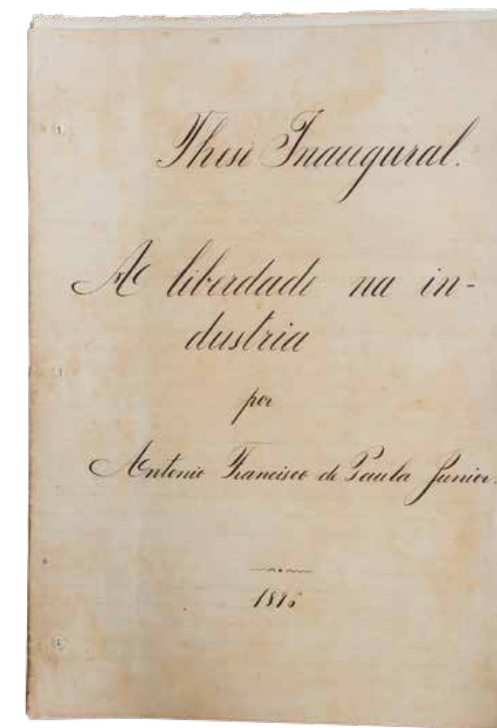 These Inaugural.
A liberdade na in-
dustria
por
Antonio Francisco de Paula Junior.